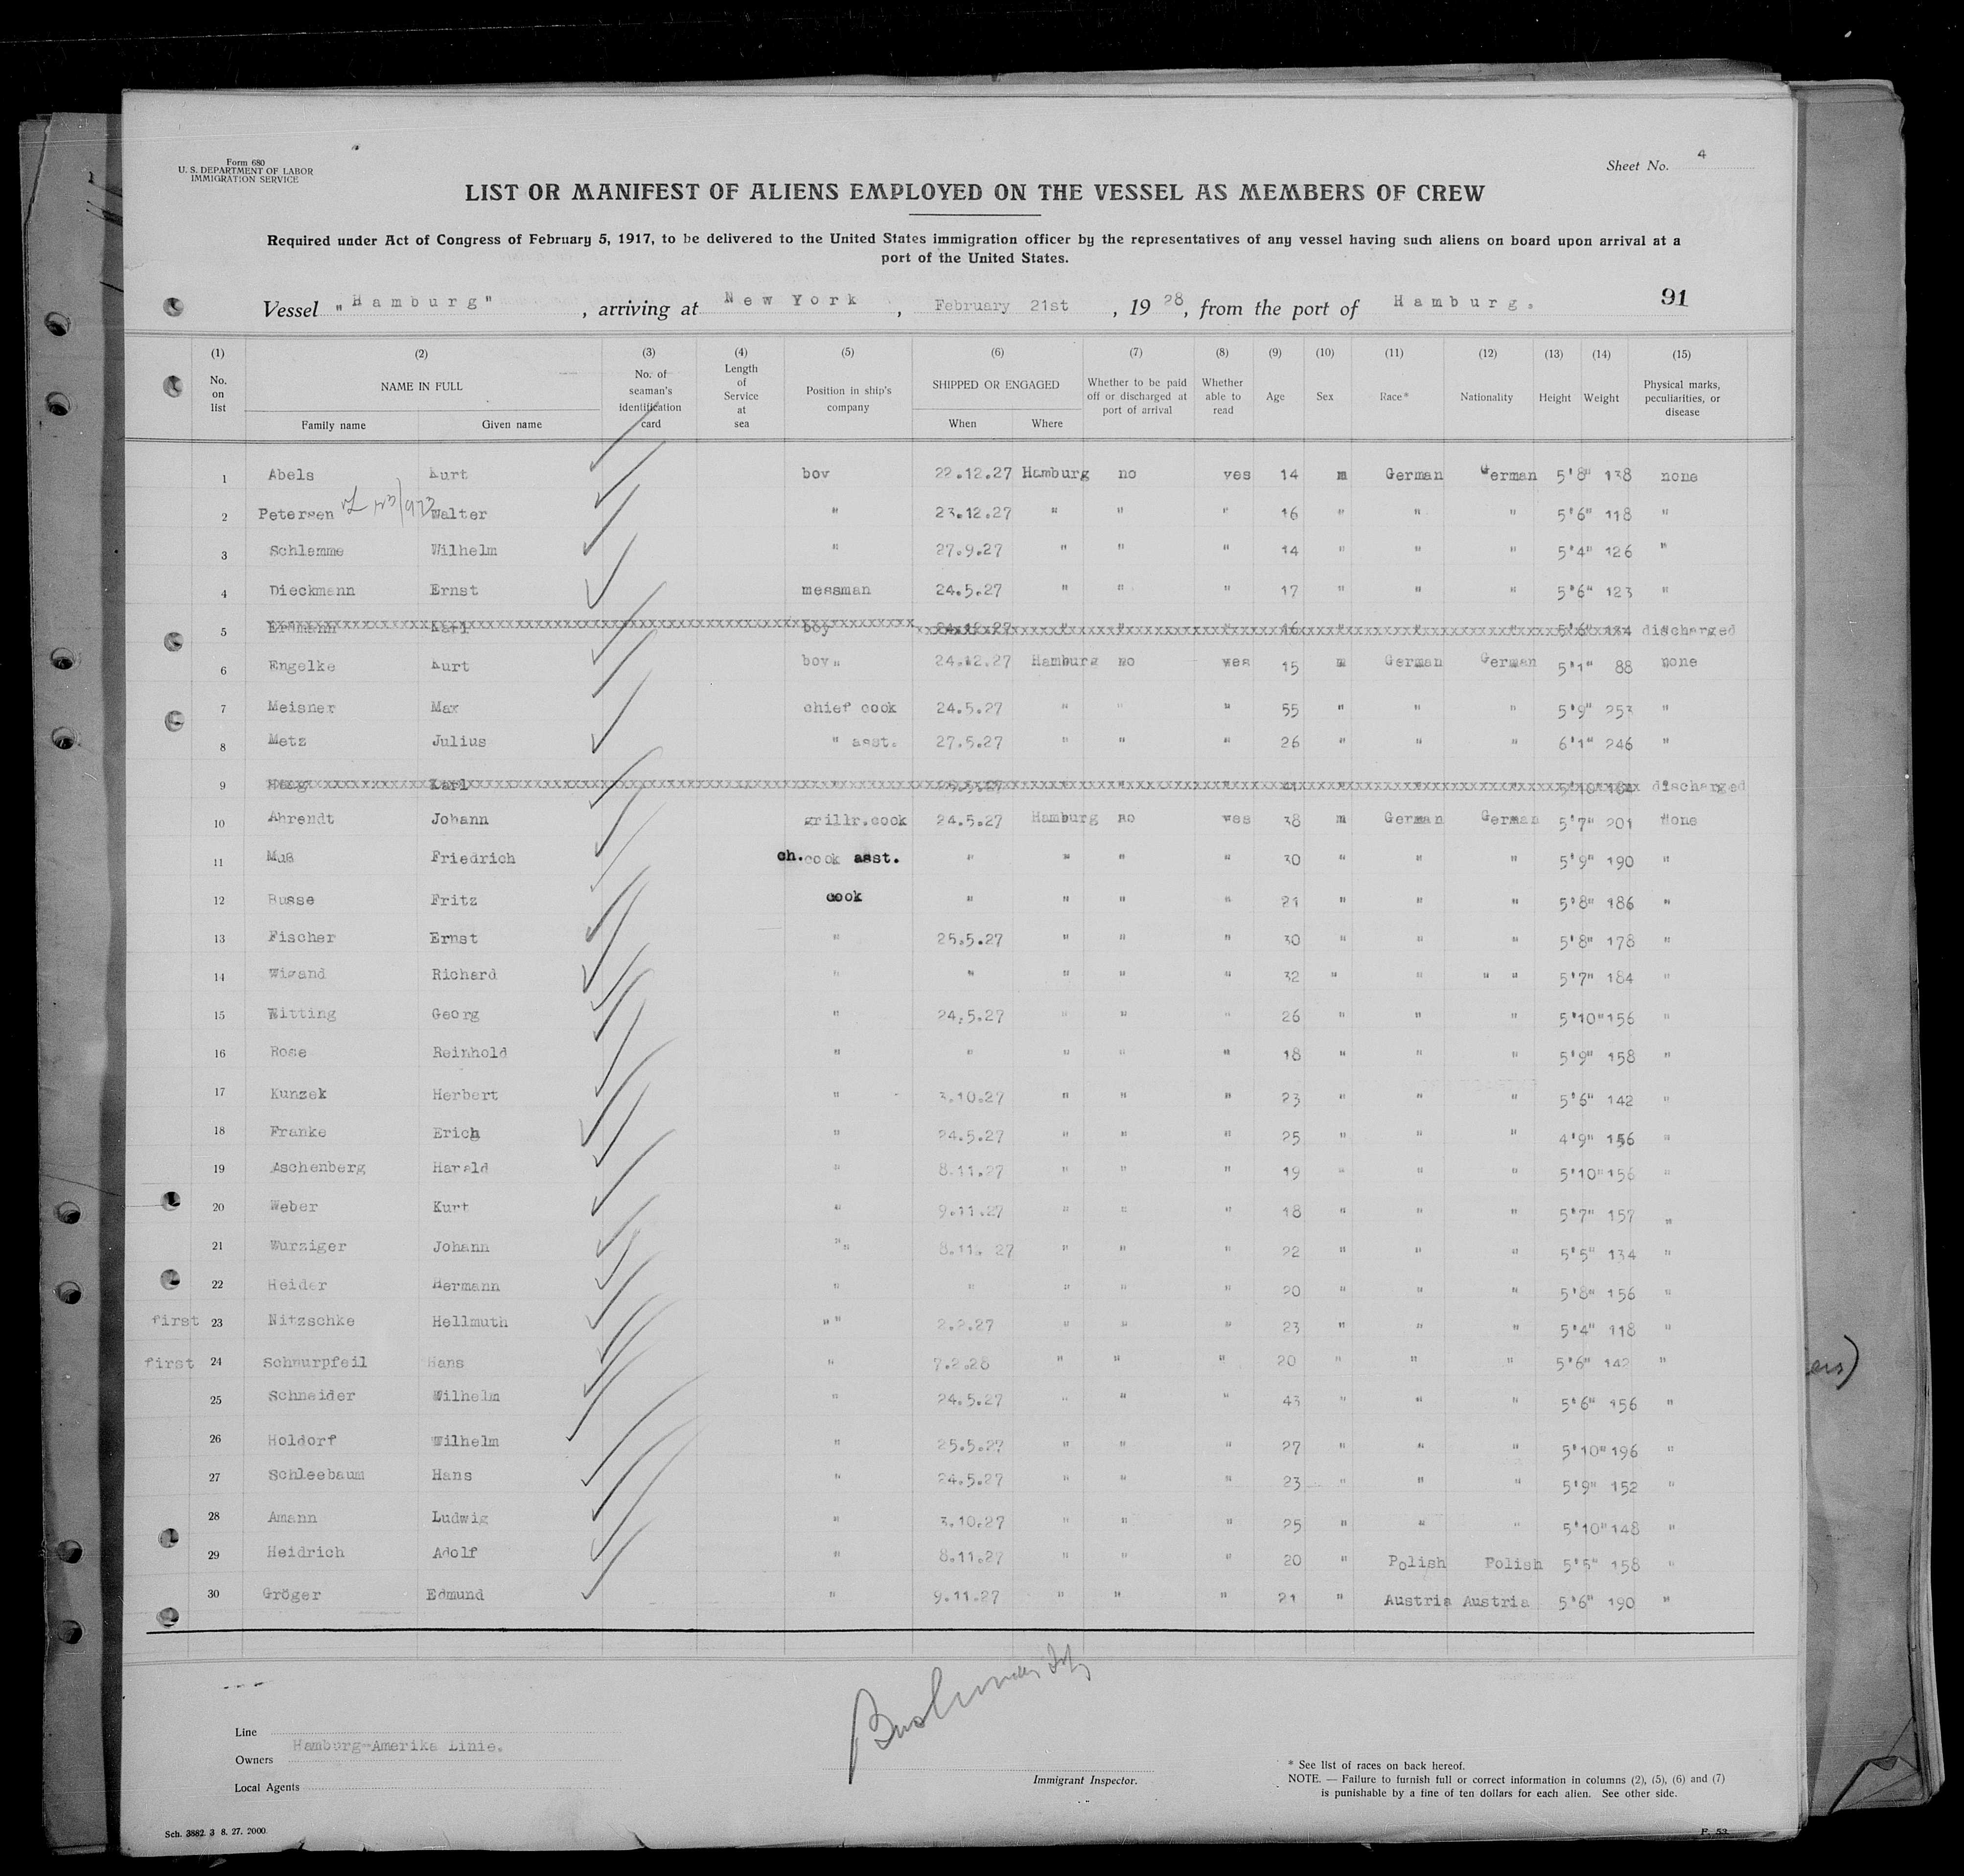 Form 680
U. S. DEPARTMENT OF LABOR
IMMIGRATION SERVICE
Sheet No. 4
LIST OR MANIFEST OF ALIENS EMPLOYED ON THE VESSEL AS MEMBERS OF CREW
Required under Act of Congress of February 5, 1917, to be delivered to the United States immigration officer by the representatives of any vessel having such aliens on board upon arrival at a
port of the United States.
Vessel „Hamburg" , arriving at New York , February 21st , 1928, from the port of Hamburg. 91
(1) (2) (3) (4) (5) (6) (7) (8) (9) (10) (11) (12) (13) (14) (15)
No. on list NAME IN FULL Family name Given name No. of seaman's identification card Length of Service at sea Position in ship's company SHIPPED OR ENGAGED When Where Whether to be paid off or discharged at port of arrival Whether able to read Age Sex Race* Nationality Height Weight Physical marks, peculiarities, or disease
1 Abels Kurt boy 22.12.27 Hamburg no yes 14 m German German 5'8" 138 none
2 Petersen Walter " 23.12.27 " " " 16 " " " 5'6" 118 "
3 Schlemme Wilhelm " 27.9.27 " " " 14 " " " 5'4" 126 "
4 Dieckmann Ernst messman 24.5.27 " " " 17 " " " 5'6" 123 "
5 Erdmann Karl boy 24.12.27 " " " 16 " " " 5'6" 134 discharged
6 Engelke Kurt boy" 24.12.27 Hamburg no yes 15 m German German 5'1" 88 none
7 Meisner Max chief cook 24.5.27 " " " 55 " " " 5'9" 253 "
8 Metz Julius " asst. 27.5.27 " " " 26 " " " 6'1" 246 "
9 Karl " " " " 41 " " " 5'10" discharged
10 Ahrendt Johann grillr.cook 24.5.27 Hamburg no yes 38 m German German 5'7" 201 none
11 Muß Friedrich ch.cook asst. " " " " 30 " " " 5'9" 190 "
12 Busse Fritz cook " " " " 21 " " " 5'8" 186 "
13 Fischer Ernst " 25.5.27 " " " 30 " " " 5'8" 178 "
14 Wigand Richard " " " " " 32 " " " " 5'7" 184 "
15 Witting Georg " 24.5.27 " " " 26 " " " 5'10" 156 "
16 Rose Reinhold " " " " " 18 " " " 5'9" 158 "
17 Kunzek Herbert " 3.10.27 " " " 23 " " " 5'6" 142 "
18 Franke Erich " 24.5.27 " " " 25 " " " 4'9" 156 "
19 Aschenberg Harald " 8.11.27 " " " 19 " " " 5'10" 156 "
20 Weber Kurt " 9.11.27 " " " 18 " " " 5'7" 157 "
21 Wurziger Johann "" 8.11. 27 " " " 22 " " " 5'5" 134 "
22 Heider Hermann " " " " " 20 " " " 5'8" 156 "
first 23 Nitzschke Hellmuth "" 2.2.27 " " " 23 " " " 5'4" 118 "
first 24 Schnurpfeil Hans " 7.2.28 " " " 20 " " " 5'6" 142 "
25 Schneider Wilhelm " 24.5.27 " " " 43 " " " 5'6" 156 "
26 Holdorf Wilhelm " 25.5.27 " " " 27 " " " 5'10" 196 "
27 Schleebaum Hans " 24.5.27 " " " 23 " " " 5'9" 152 "
28 Amann Ludwig " 3.10.27 " " " 25 " " " 5'10" 148 "
29 Heidrich Adolf " 8.11.27 " " " 20 " Polish Polish 5'5" 158 "
30 Gröger Edmund " 9.11.27 " " " 21 " Austria Austria 5'6" 190 "
Line
Hamburg-Amerika Linie.
Owners
Local Agents
Immigrant Inspector.
* See list of races on back hereof.
NOTE. — Failure to furnish full or correct information in columns (2), (5), (6) and (7)
is punishable by a fine of ten dollars for each alien. See other side.
Sch. 3882. 3 8. 27. 2000.
F. 53.